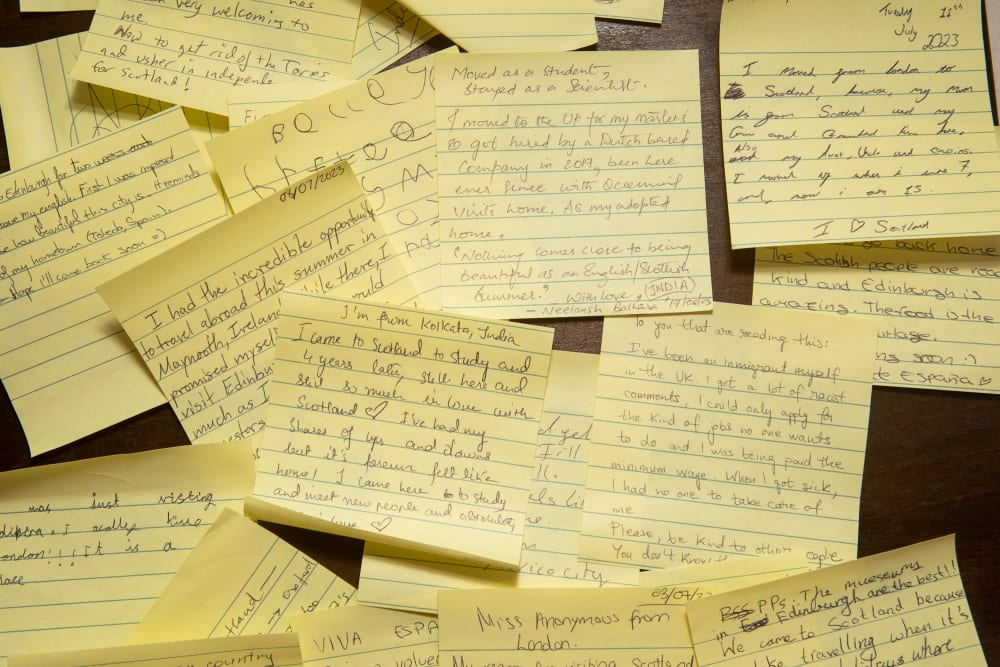 very welcoming to
me.
Now to get rid of the Tories
and usher in independence
for Scotland!
Edinburgh for two weeks
my english. First I was
how beautiful this city is. It reminds
my hometown (Toledo, Spain).
I'll come back soon =)
04/07/2023
I had the incredible opportunity
to travel abroad this summer in
Maynooth, Ireland
While there, I
promised mysel
visit Edinbur
much as I
estors
Moved as a student,
stayed as a Scientist.
I moved to the UK for my masters
so got hired by a Dutch based
Company in 2019, been here
ever since with Occasional
visits home. As my adopted
home,
"Nothing comes close to being
beautiful as an English/Scottish
Summer."
With love, (INDIA)
Tuesday 11th
July
2023
I moved from london to
Scotland, because, my Mum
is from Scotland and my
Gran and Grandad live here,
Also my Aunt, Uncle and cousins.
I moved up when i was 7,
and, now i am 15.
I ♡ Scotland
back home
the Scottish people are
kind and Edinburgh is
amazing. The food is the
soon :)
España
I'm from Kolkata, India
I came to Scotland to study and
4 years later, still here and
still so much in love with
Scotland ♡ I've had my
shares of ups and downs
but it's forever felt like
home! I came here to study
and meet new people and absolutely
love ♡
To you that are reading this:
I've been an immigrant myself
in the UK. I got a lot of racist
comments, I could only apply for
the kind of jobs no one wants
to do and I was being paid the
minimum wage. When I got sick,
I had no one to take care of
me.
Please, be kind to other people
You don't know!!
was just visting
I really
london!!! It is a
lace
xico City
VIVA ESPA
country
03/07/
Miss Anonymous from
London.
My reason for visiting Scotland
PPS. The museums
in Edinburgh are the best!!
We came to Scotland because
like travelling when it's
where